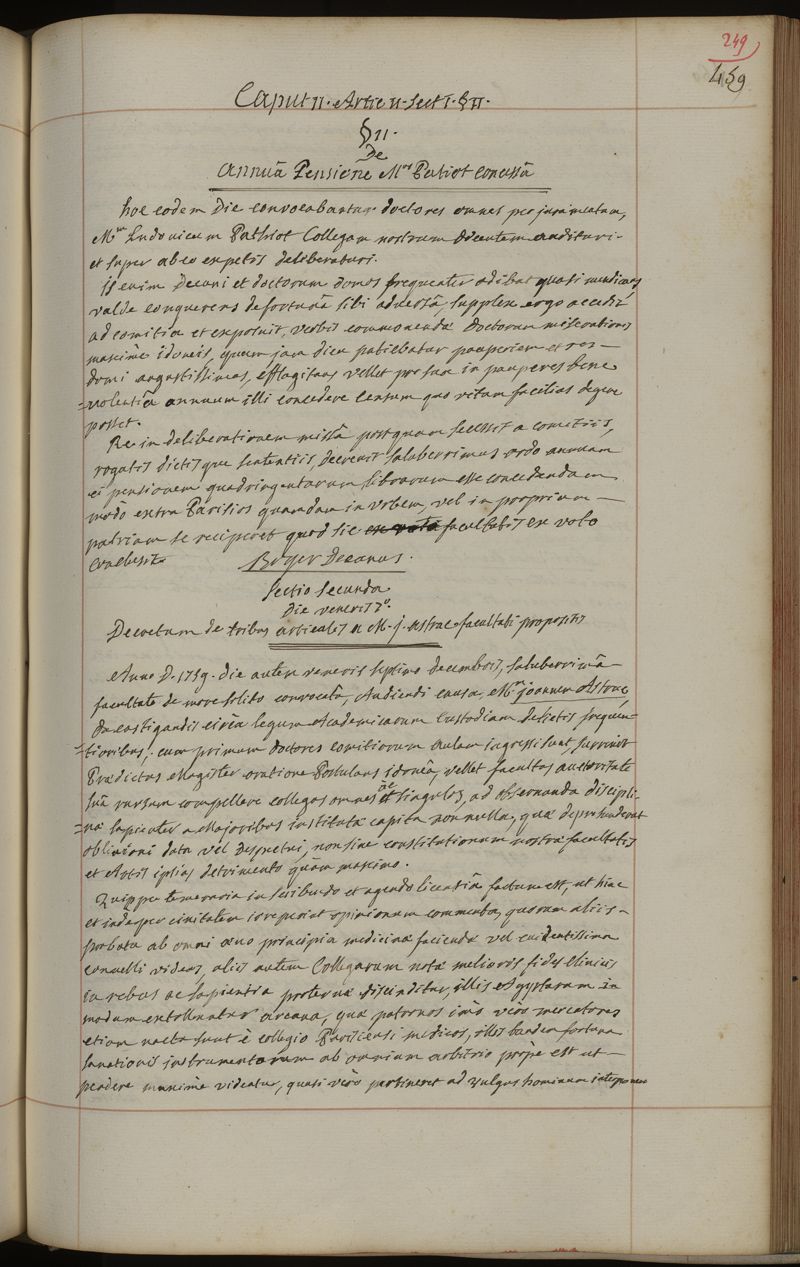 249
459
Caput II. Artic II. Sect I. § II.
§ II.
De
annuâ Pensione Mro Patiot concessâ
hoc eodem Die convocabantur doctores omnes per juramentum,
Mrum Ludovicum Pathiot Collegam nostrum docentem audituri
et super ab eo expetis deliberaturi.
is enim Decani et doctorum domos frequenter adibat quasi mendicans
valde conquerens de fortunâ sibi adversâ, supplex ergo accedit
ad comitia et exposuit, verbis commovendæ doctorum miserationi
maxime idoneis, quam jam diu patiebatur pauperiem et res
domi angustissimas, efflagitans vellet pro sua in pauperes bene
=volentiâ annuum illi concedere censum quo vitam facilius degere
posset.
Re in deliberationem missâ postquam secessit a comitiis,
rogatis dictisque sententiis, decrevit saluberrimus ordo annuam
ei pensionem quadringentarum librarum esse concedendam
modo extra Parisios quamdam in urbem, vel in propriam
patriam se reciperet quod sic ex voto facultatis ex voto
conclusit. Boyer Decanus.
Sectio Secunda
Die veneris 7a.
Decretum de tribus articulis a M. j. astruc facultati propositis
Anno D. 1759. die autem veneris septimo decembris, saluberrimâ
facultate de more solito convocatâ, Audiendi causa, Mrum joannem Astruc,
De castigandis circa legum Academicarum Custodiam defectis frequen-
=tioribus; cum primum doctores comitiorum aulam ingressi sunt, surrexit
Prædictus Magister oratione Postulans idoneâ, vellet facultas auctoritate
suâ rursum compellere collegas omnes ac singulos, ad observanda discipli-
=næ sapienter a Majoribus institutæ capita nonnulla, quæ deprehenderat
oblivioni data vel despectui, non sine constitutionum nostræ facultatis
et Artis ipsius detrimento quam maximo.
Quippe temeraria in scribendo et agendo licentiâ factum est, ut hinc
et inde per civitatem irreperiat opinionum commenta, quorum aliis
probata ab omni ævo principia medicinæ faciendæ vel evidentissima
convelli videas, aliis autem Collegarum notæ melioris fides Clinicis
in rebus ac sapientia proterve discinditur, illis Agyrtarum in
modum extolluntur arcana, quæ patronos imò vero mercatores
etiam nacta sunt è collegio Parisiensi medicos, illis tandem fortuna
sanationis instrumentorum ab omnium arbitrio propè est ut
pendere maxime videatur, quasi verò pertineret ad vulgus hominum